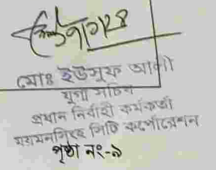 মোঃ ইউসুফ আলী
যুগ্ম সচিব
প্রধান নির্বাহী কর্মকর্তা
ময়মনসিংহ সিটি কর্পোরেশন
পৃষ্ঠা নং-৯